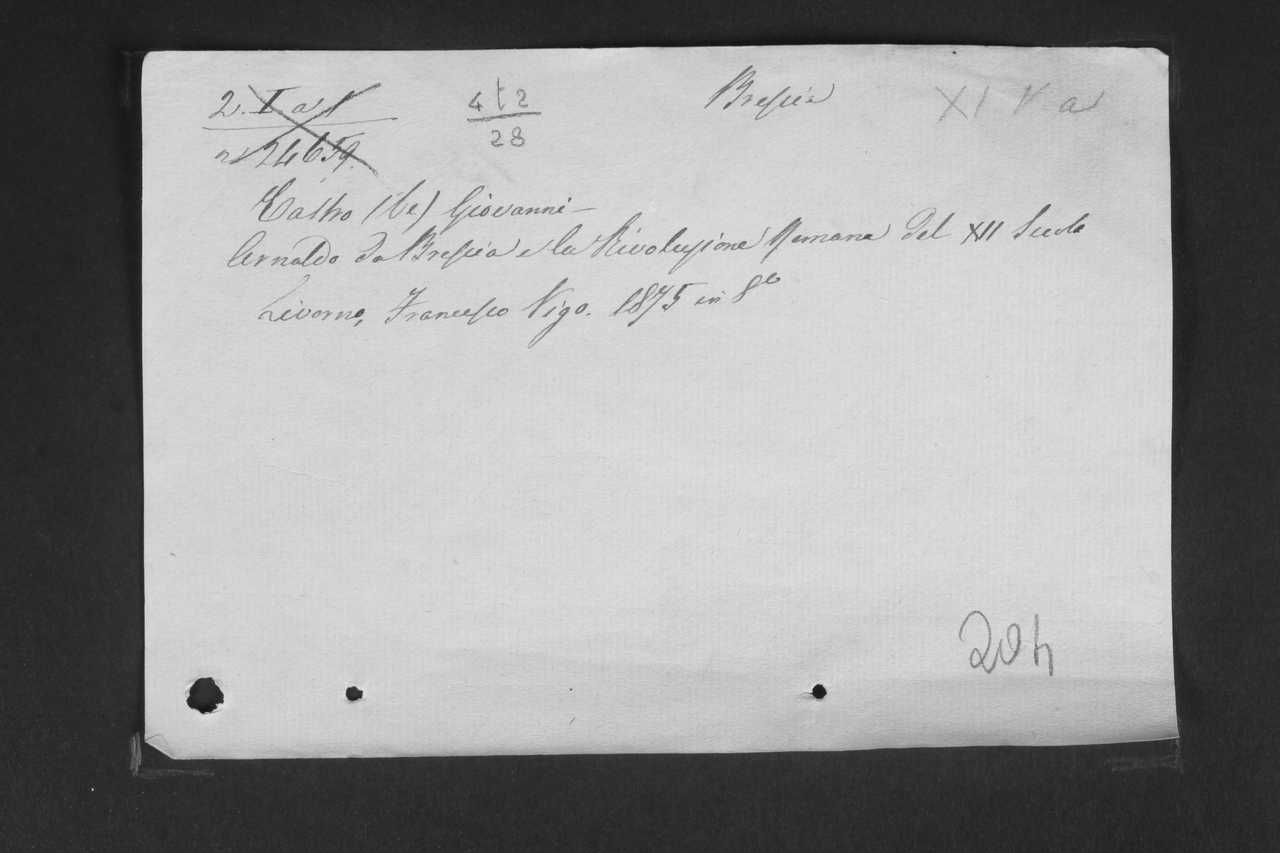 2. I a 1
n 24659.
4 t 2
28
Brescia
XI V a
Castro (De) Giovanni —
Arnaldo da Brescia e la Rivoluzione Romana del XII Secolo
Livorno, Francesco Vigo. 1875 in 8º
204